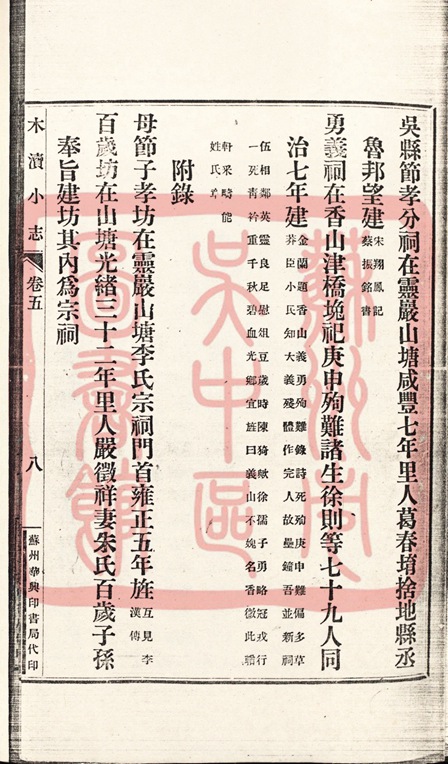 吳縣節孝分祠在靈巖山塘咸豐七年里人葛春堉捨地縣丞
魯邦望建宋翔鳳記蔡振銘書
勇義祠在香山津橋堍祀庚申殉難諸生徐則等七十九人同
治七年建金蘭題香山義勇殉難錄詩死殉庚申難偏多草莽臣小民知大義殘體作完人故壘鐘吾並新祠
伍相鄰英靈良足慰俎豆歲時陳猗歟徐孺子勇略冠戎行一死青衿重千秋碧血光鄉宜旌曰義山不愧名香徵此譜
軒采疇能姓氏詳
附錄
母節子孝坊在靈巖山塘李氏宗祠門首雍正五年旌互見李漢傳
百歲坊在山塘光緒三十二年里人嚴徵祥妻朱氏百歲子孫
奉旨建坊其內爲宗祠
木瀆小志
卷五
八
蘇州華興印書局代印
蘇州市
吳中區
圖書館